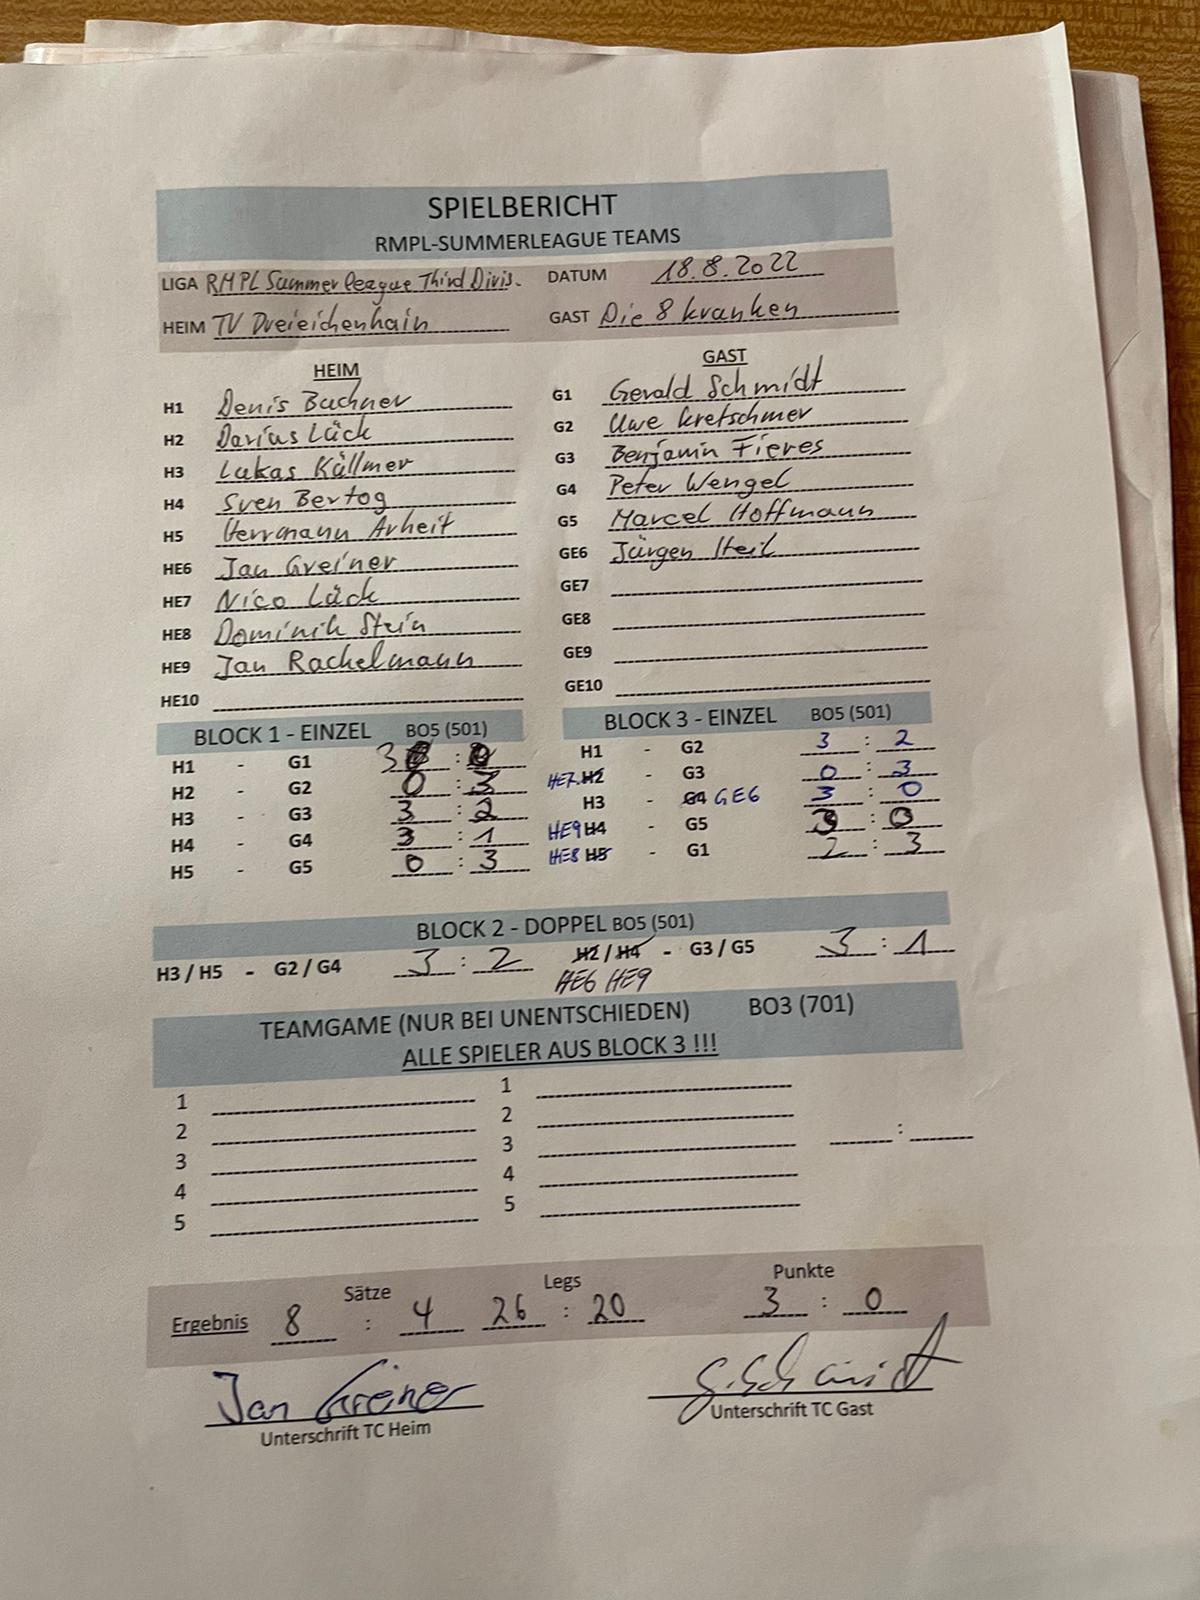 SPIELBERICHT
RMPL-SUMMERLEAGUE TEAMS
LIGA RMPL Summerleague Third Divis. DATUM 18.8.2022
HEIM TV Dreieichenhain GAST Die 8 kranken
HEIM
H1 Denis Buchner
H2 Darius Lück
H3 Lukas Källmer
H4 Sven Bertog
H5 Herrmann Arheit
HE6 Jan Greiner
HE7 Nico Lück
HE8 Dominik Stein
HE9 Jan Rachelmann
HE10
GAST
G1 Gerald Schmidt
G2 Uwe Kretschmer
G3 Benjamin Fieres
G4 Peter Wengel
G5 Marcel Hoffmann
GE6 Jürgen Heil
GE7
GE8
GE9
GE10
BLOCK 1 - EINZEL BO5 (501)
H1 - G1 3 : 0
H2 - G2 0 : 3
H3 - G3 3 : 2
H4 - G4 3 : 1
H5 - G5 0 : 3
BLOCK 3 - EINZEL BO5 (501)
H1 - G2 3 : 2
HE7 H2 - G3 0 : 3
H3 - G4 GE6 3 : 0
HE9 H4 - G5 3 : 0
HE8 H5 - G1 2 : 3
BLOCK 2 - DOPPEL BO5 (501)
H3 / H5 - G2 / G4 3 : 2 H2 / H4 - G3 / G5 3 : 1
HE6 HE9
TEAMGAME (NUR BEI UNENTSCHIEDEN) BO3 (701)
ALLE SPIELER AUS BLOCK 3 !!!
1 1
2 2
3 3 :
4 4
5 5
Sätze Legs Punkte
Ergebnis 8 : 4 26 : 20 3 : 0
Jan Greiner G. Schmidt
Unterschrift TC Heim Unterschrift TC Gast